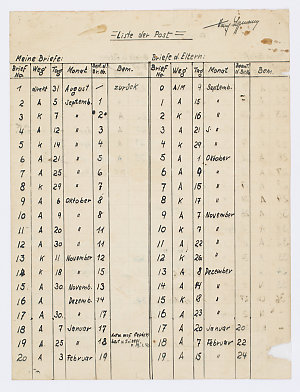 =Liste der Post=
Meine Briefe: Briefe d. Eltern:
Brief No. Weg Tag Monat Bem. Brief No. Weg Tag Monat Bem.
1 direkt 31 August — zurück 0 A/M 9 Septemb.
2 A 5 Septemb. 1 1 A 15 "
3 K 7 " 2 2 K 16 "
4 A 12 " 3 3 A 21 S. "
5 K 14 " 4 4 K 29 "
6 A 21 " 5 5 A 1 Oktober
7 A 25 " 6 6 A 9 "
8 K 29 " 7 7 A 15 "
9 A 6 Oktober 8 8 K 17 "
10 A 9 " 8 9 A 7 November
11 A 20 " 11 10 K 7 "
12 A 30 " 11 11 A 22 "
13 K 11 November 12 12 K 26 "
14 K 18 " 15 13 A 8 Dezember
15 A 30 Novemb. 13 14 A 15 "
16 A Dezemb. 14 15 K 8 "
17 A 30 " 17 16 A 23 "
18 A 7 Januar 17 17 A 20 Januar 20
19 A 25 " 18 18 A 7 Februar 22
20 A 3 Februar 19 19 A 15 " 24